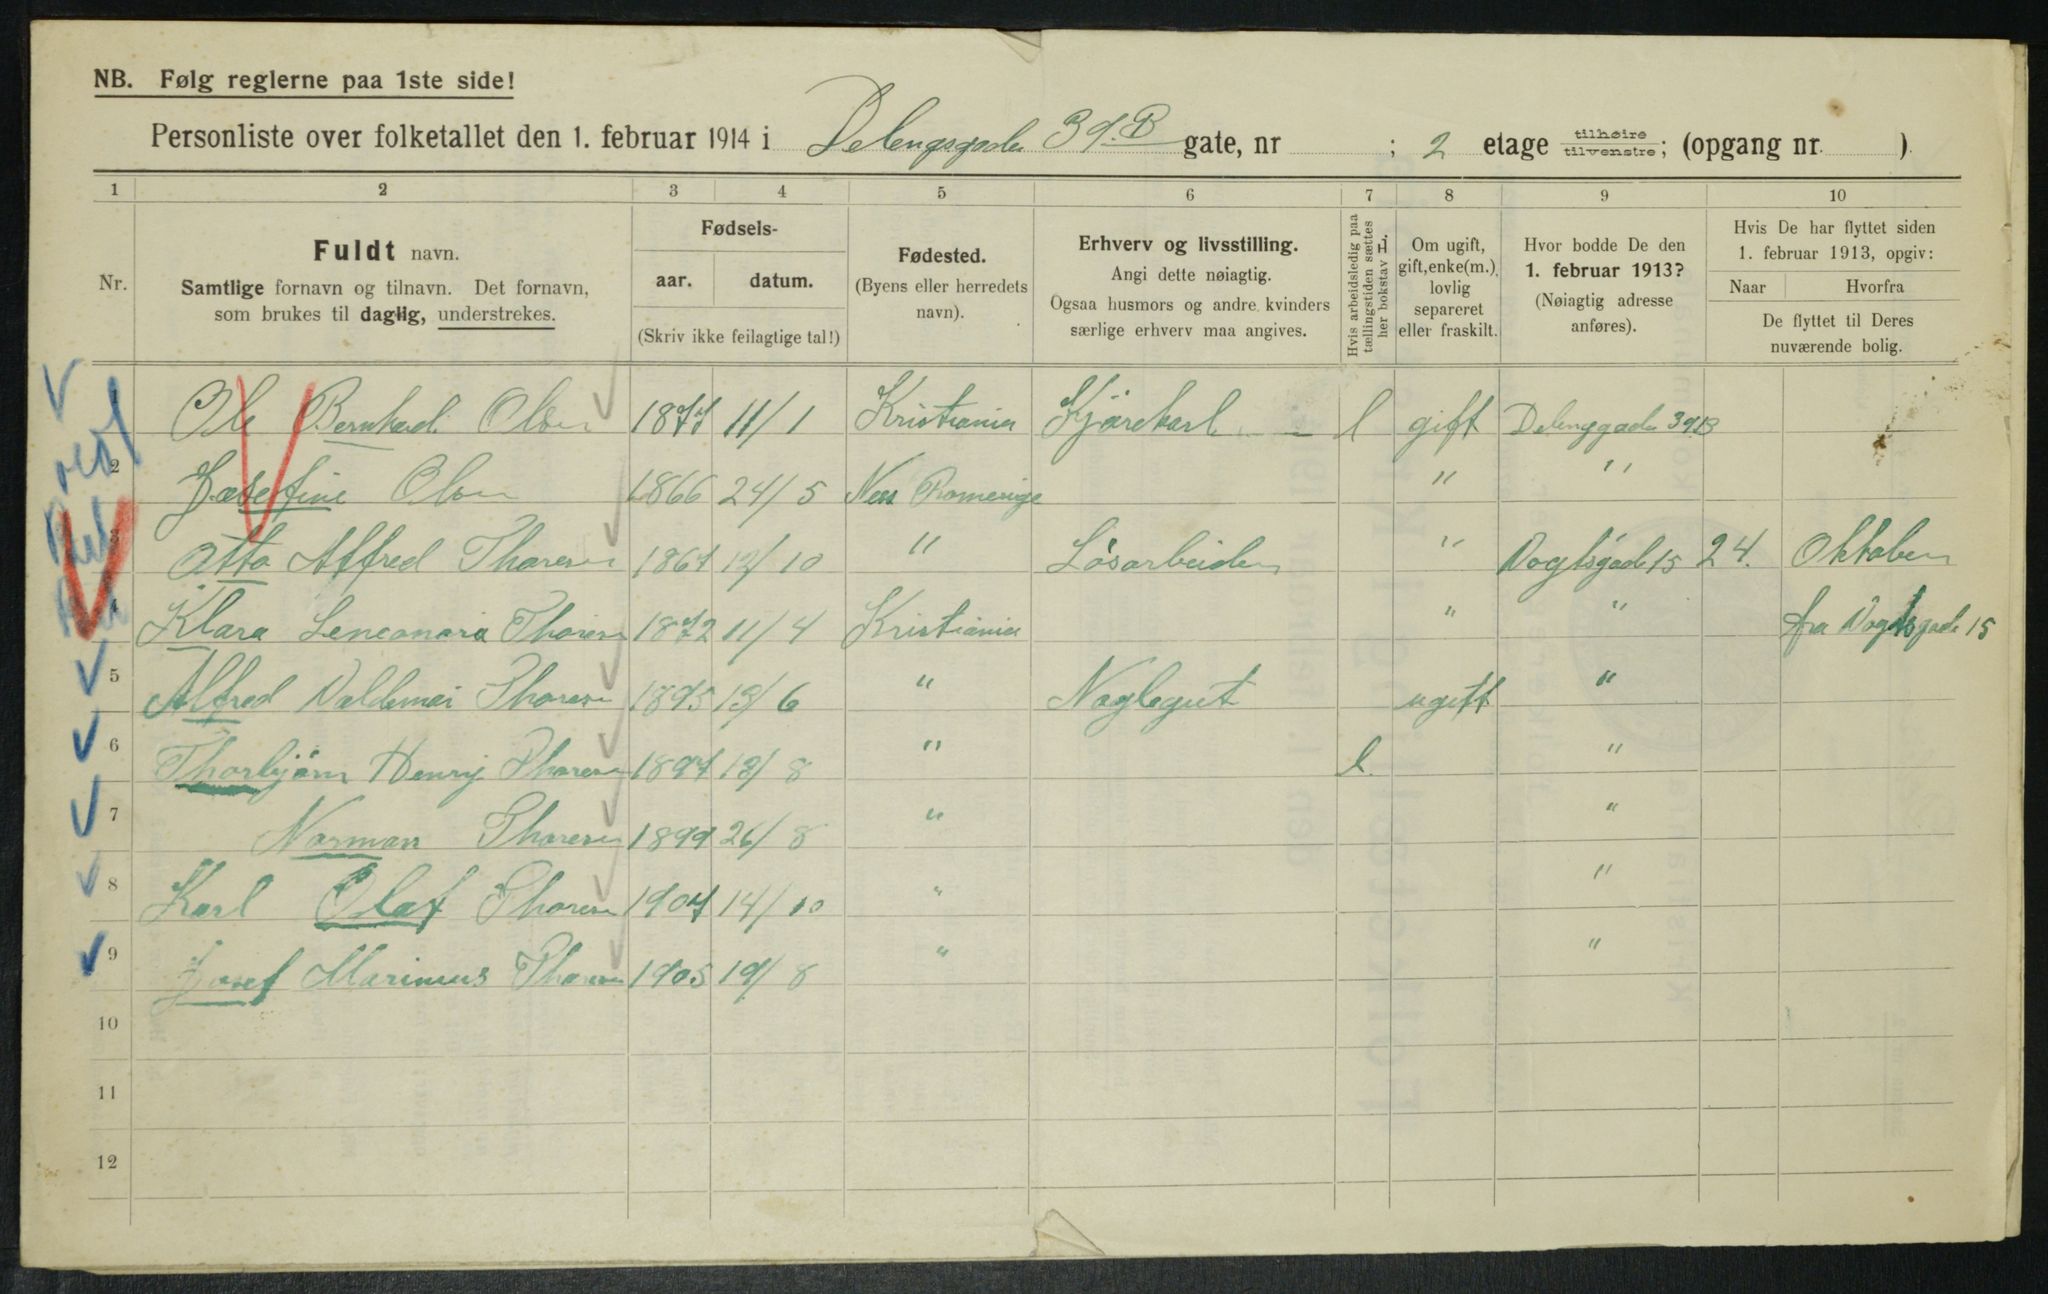 NB. Følg reglerne paa 1ste side!
Personliste over folketallet den 1. februar 1914 i Delengsgade 39.B gate, nr ; 2 etage tilhøire/tilvenstre; (opgang nr. ).
1 2 3 4 5 6 7 8 9 10
Nr.
Fuldt navn.
Samtlige fornavn og tilnavn. Det fornavn,
som brukes til daglig, understrekes.
Fødsels-
aar. datum.
(Skriv ikke feilagtige tal!)
Fødested.
(Byens eller herredets
navn).
Erhverv og livsstilling.
Angi dette nøiagtig.
Ogsaa husmors og andre kvinders
særlige erhverv maa angives.
Hvis arbeidsledig paa
tællingstiden sættes
her bokstav l.
Om ugift,
gift, enke(m.),
lovlig
separeret
eller fraskilt.
Hvor bodde De den
1. februar 1913?
(Nøiagtig adresse
anføres).
Hvis De har flyttet siden
1. februar 1913, opgiv:
Naar Hvorfra
De flyttet til Deres
nuværende bolig.
1 Ole Bernhard Olsen 1877 11/1 Kristiania Kjørekarl l gift Delenggade 39B
2 Josefine Olsen 1866 24/5 Nes Romerige " "
3 Otto Alfred Thoresen 1867 12/10 " Løsarbeider " Vogtsgade 15 24. Oktober
4 Klara Leneonora Thoresen 1872 11/4 Kristiania " " fra Vogtsgade 15
5 Alfred Valdemar Thoresen 1895 13/6 " Naglegut ugift "
6 Thorbjørn Henry Thoresen 1897 13/8 " l. "
7 Norman Thoresen 1899 26/8 " "
8 Karl Olaf Thoresen 1907 14/10 " "
9 Josef Marinius Thoresen 1905 19/8 " "
10
11
12